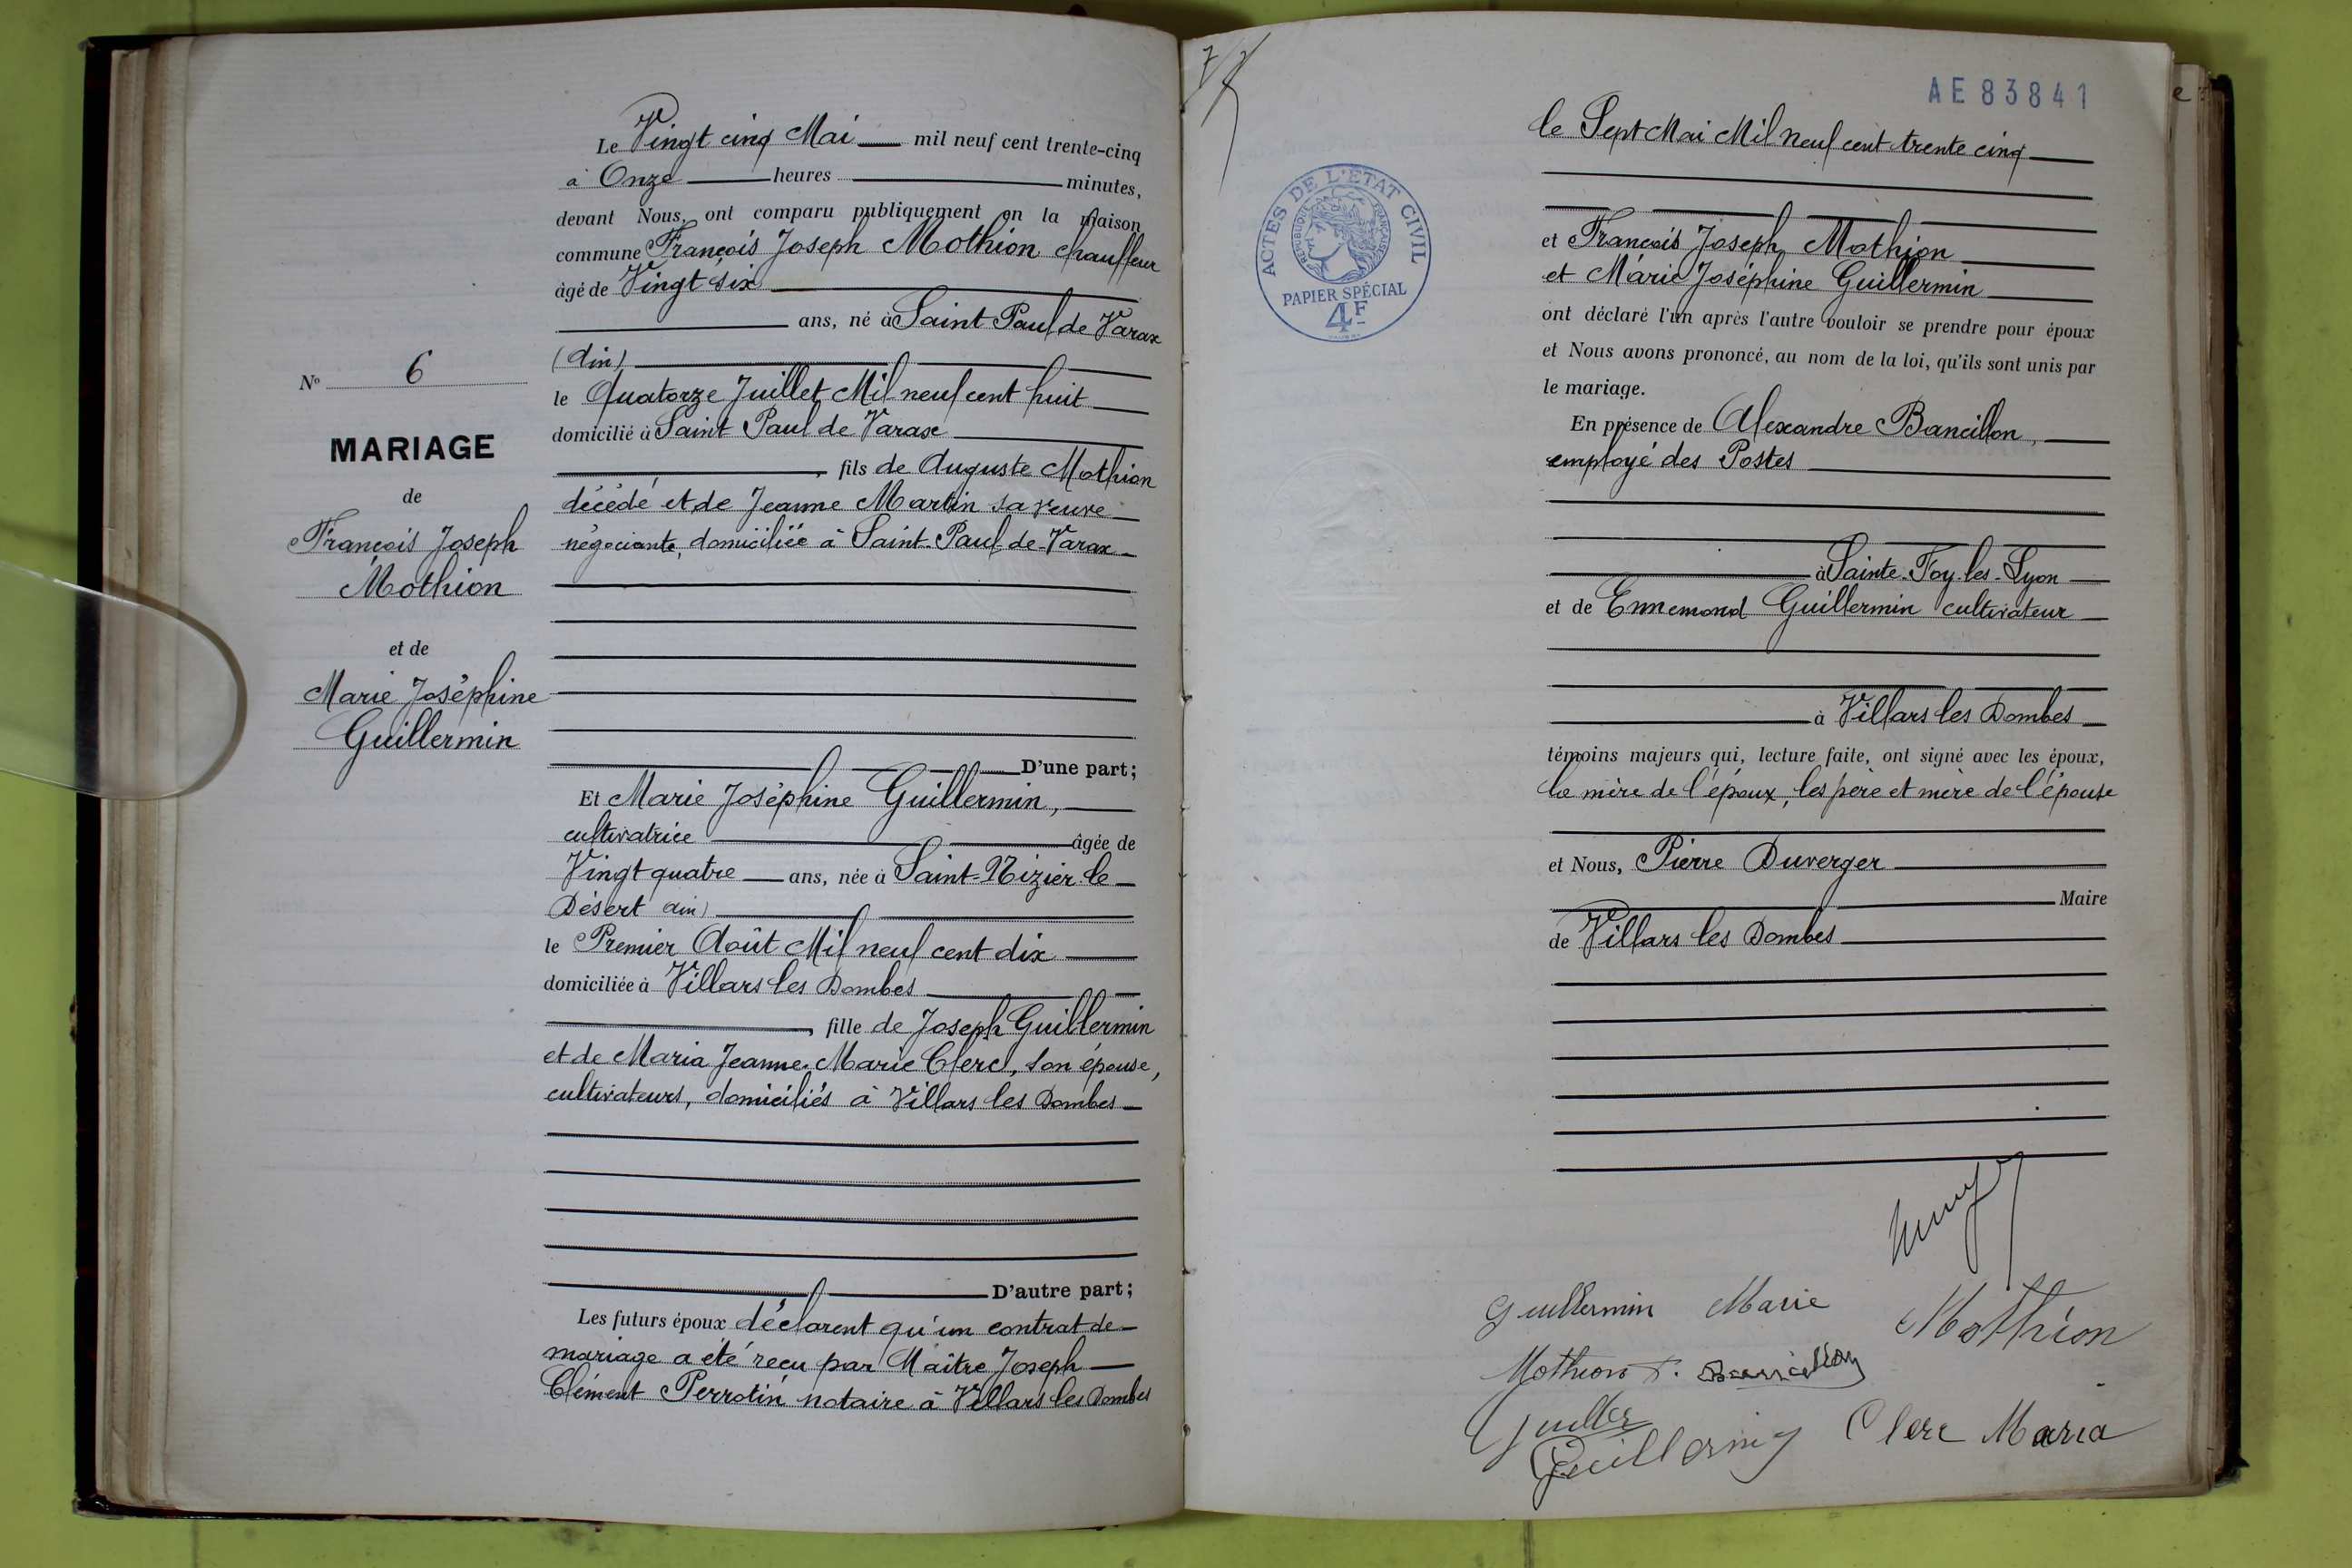 Le Vingt cinq Mai mil neuf cent trente-cinq
à Onze heures minutes,
devant Nous, ont comparu publiquement en la maison
commune François Joseph Mothion chauffeur
âgé de Vingt six
ans, né à Saint Paul de Varax
(Ain)
le Quatorze Juillet Mil neuf cent huit
domicilié à Saint Paul de Varax
, fils de Auguste Mothion
décédé et de Jeanne Martin sa veuve
négociante, domiciliée à Saint-Paul-de-Varax
D'une part;
Nº 6
MARIAGE
de
François Joseph
Mothion
et de
Marie Joséphine
Guillermin
Et Marie Joséphine Guillermin,
cultivatrice âgée de
Vingt quatre ans, née à Saint-Nizier-le
Désert Ain)
le Premier Août Mil neuf cent dix
domiciliée à Villars les Dombes
, fille de Joseph Guillermin
et de Maria Jeanne-Marie Clerc, son épouse,
cultivateurs, domiciliés à Villars les Dombes
D'autre part;
Les futurs époux déclarent qu'un contrat de
mariage a été reçu par Maître Joseph
Clément Perrotin notaire à Villars les Dombes
AE83841
le Sept Mai Mil neuf cent trente cinq
et François Joseph Mothion
et Marie Joséphine Guillermin
ont déclaré l'un après l'autre vouloir se prendre pour époux
et Nous avons prononcé, au nom de la loi, qu'ils sont unis par
le mariage.
ACTES DE L'ETAT CIVIL
REPUBLIQUE FRANÇAISE
PAPIER SPÉCIAL
4F
En présence de Alexandre Bancillon,
employé des Postes
à Sainte-Foy-les-Lyon
et de Ennemond Guillermin cultivateur
à Villars les Dombes
témoins majeurs qui, lecture faite, ont signé avec les époux,
la mère de l'époux, les père et mère de l'épouse
et Nous, Pierre Duverger
Maire
de Villars les Dombes
Guillermin Marie Mothion
Mothion F. Bancillon
Guillermin Clerc Maria